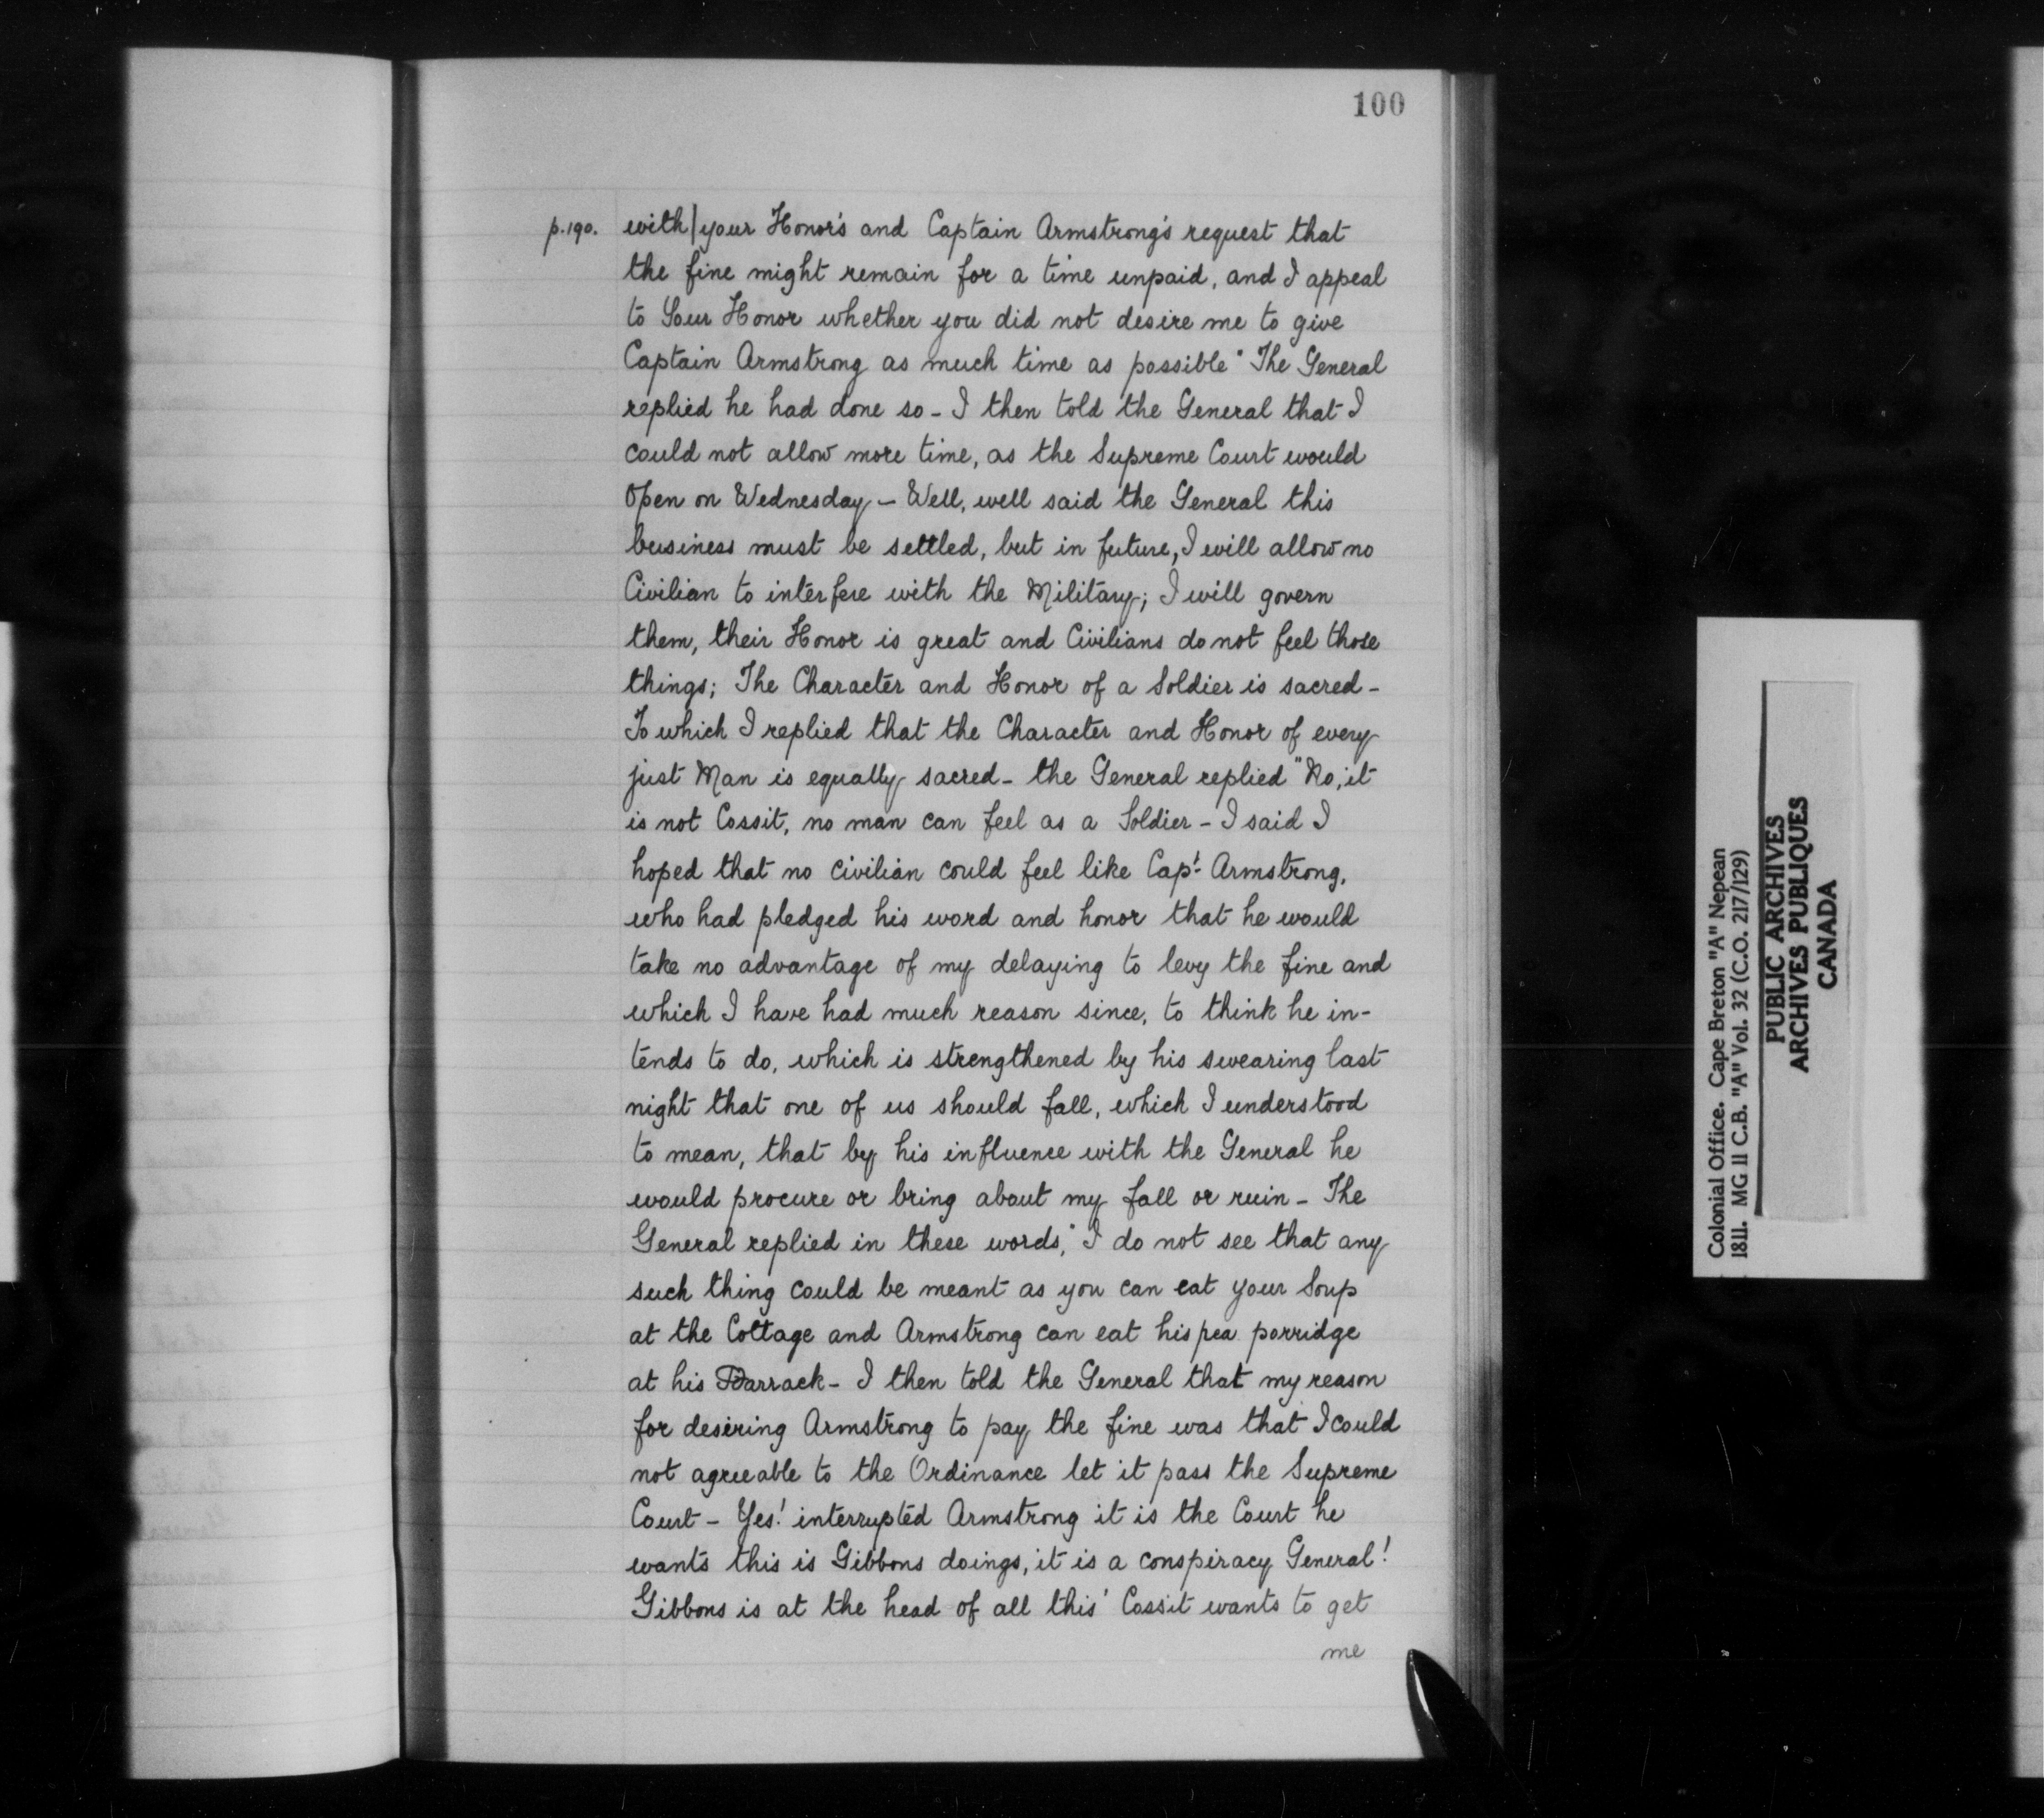 100
p.190. with/your Honor's and Captain Armstrong's request that
the fine might remain for a time unpaid, and I appeal
to Your Honor whether you did not desire me to give
Captain Armstrong as much time as possible" The General
replied he had done so - I then told the General that I
could not allow more time, as the Supreme Court would
Open on Wednesday - Well, well said the General this
business must be settled, but in future, I will allow no
Civilian to interfere with the Military; I will govern
them, their Honor is great and Civilians do not feel those
things; The Character and Honor of a Soldier is sacred -
To which I replied that the Character and Honor of every
just Man is equally sacred - the General replied "No, it
is not Cossit, no man can feel as a Soldier - I said I
hoped that no civilian could feel like Capt. Armstrong,
who had pledged his word and honor that he would
take no advantage of my delaying to levy the fine and
which I have had much reason since, to think he in-
tends to do, which is strengthened by his swearing last
night that one of us should fall, which I understood
to mean, that by his influence with the General he
would procure or bring about my fall or ruin - The
General replied in these words, "I do not see that any
such thing could be meant as you can eat your Soup
at the Cottage and Armstrong can eat his pea porridge
at his Barrack - I then told the General that my reason
for desiring Armstrong to pay the fine was that I could
not agreeable to the Ordinance let it pass the Supreme
Court - Yes! interrupted Armstrong it is the Court he
wants this is Gibbons doings, it is a conspiracy General!
Gibbons is at the head of all this' Cossit wants to get
me
Colonial Office. Cape Breton "A" Nepean
1811. MG 11 C.B. "A" Vol. 32 (C.O. 217/129)
PUBLIC ARCHIVES
ARCHIVES PUBLIQUES
CANADA